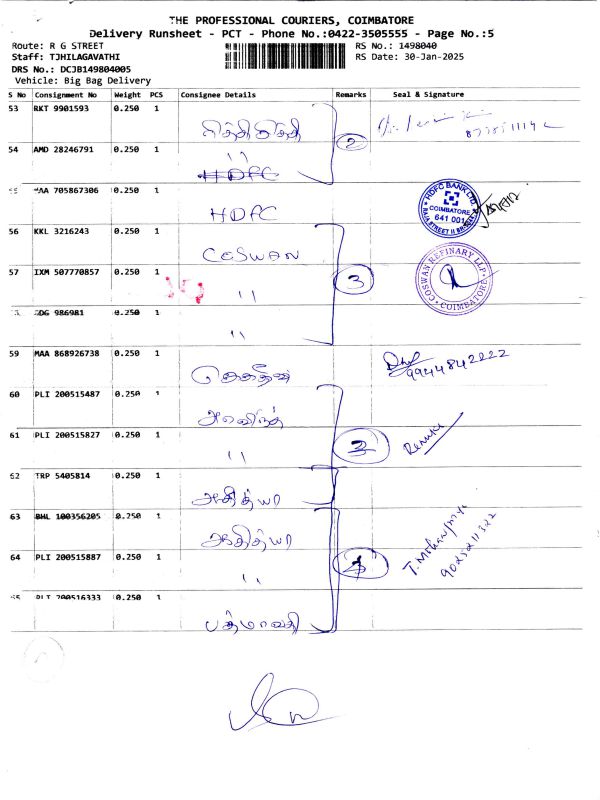 THE PROFESSIONAL COURIERS, COIMBATORE
Delivery Runsheet - PCT - Phone No.:0422-3505555 - Page No.:5
Route: R G STREET
RS No.: 1498040
Staff: TJHILAGAVATHI
RS Date: 30-Jan-2025
DRS No.: DCJB149804005
Vehicle: Big Bag Delivery
S No Consignment No Weight PCS Consignee Details Remarks Seal & Signature
53 RKT 9901593 0.250 1
2
54 AMD 28246791 0.250 1 "
HDFC
MAA 705867306 0.250 1
HDFC
HDFC BANK LTD
COIMBATORE
641 001
56 KKL 3216243 0.250 1
COSWAN
COSWAN REFINARY LLP
COIMBATORE
57 IXM 507770857 0.250 1
" 3
986981 0.250 1
"
59 MAA 868926738 0.250 1
9944842222
60 PLI 200515487 0.250 1
அரவிந்த்
61 PLI 200515827 0.250 1
" 3 Renuka
62 TRP 5405814 0.250 1
ஆதித்யா
63 BHL 100356205 0.250 1
ஆதித்யா
64 PLI 200515887 0.250 1
"
PLI 200516333 0.250 1
பத்மாவதி